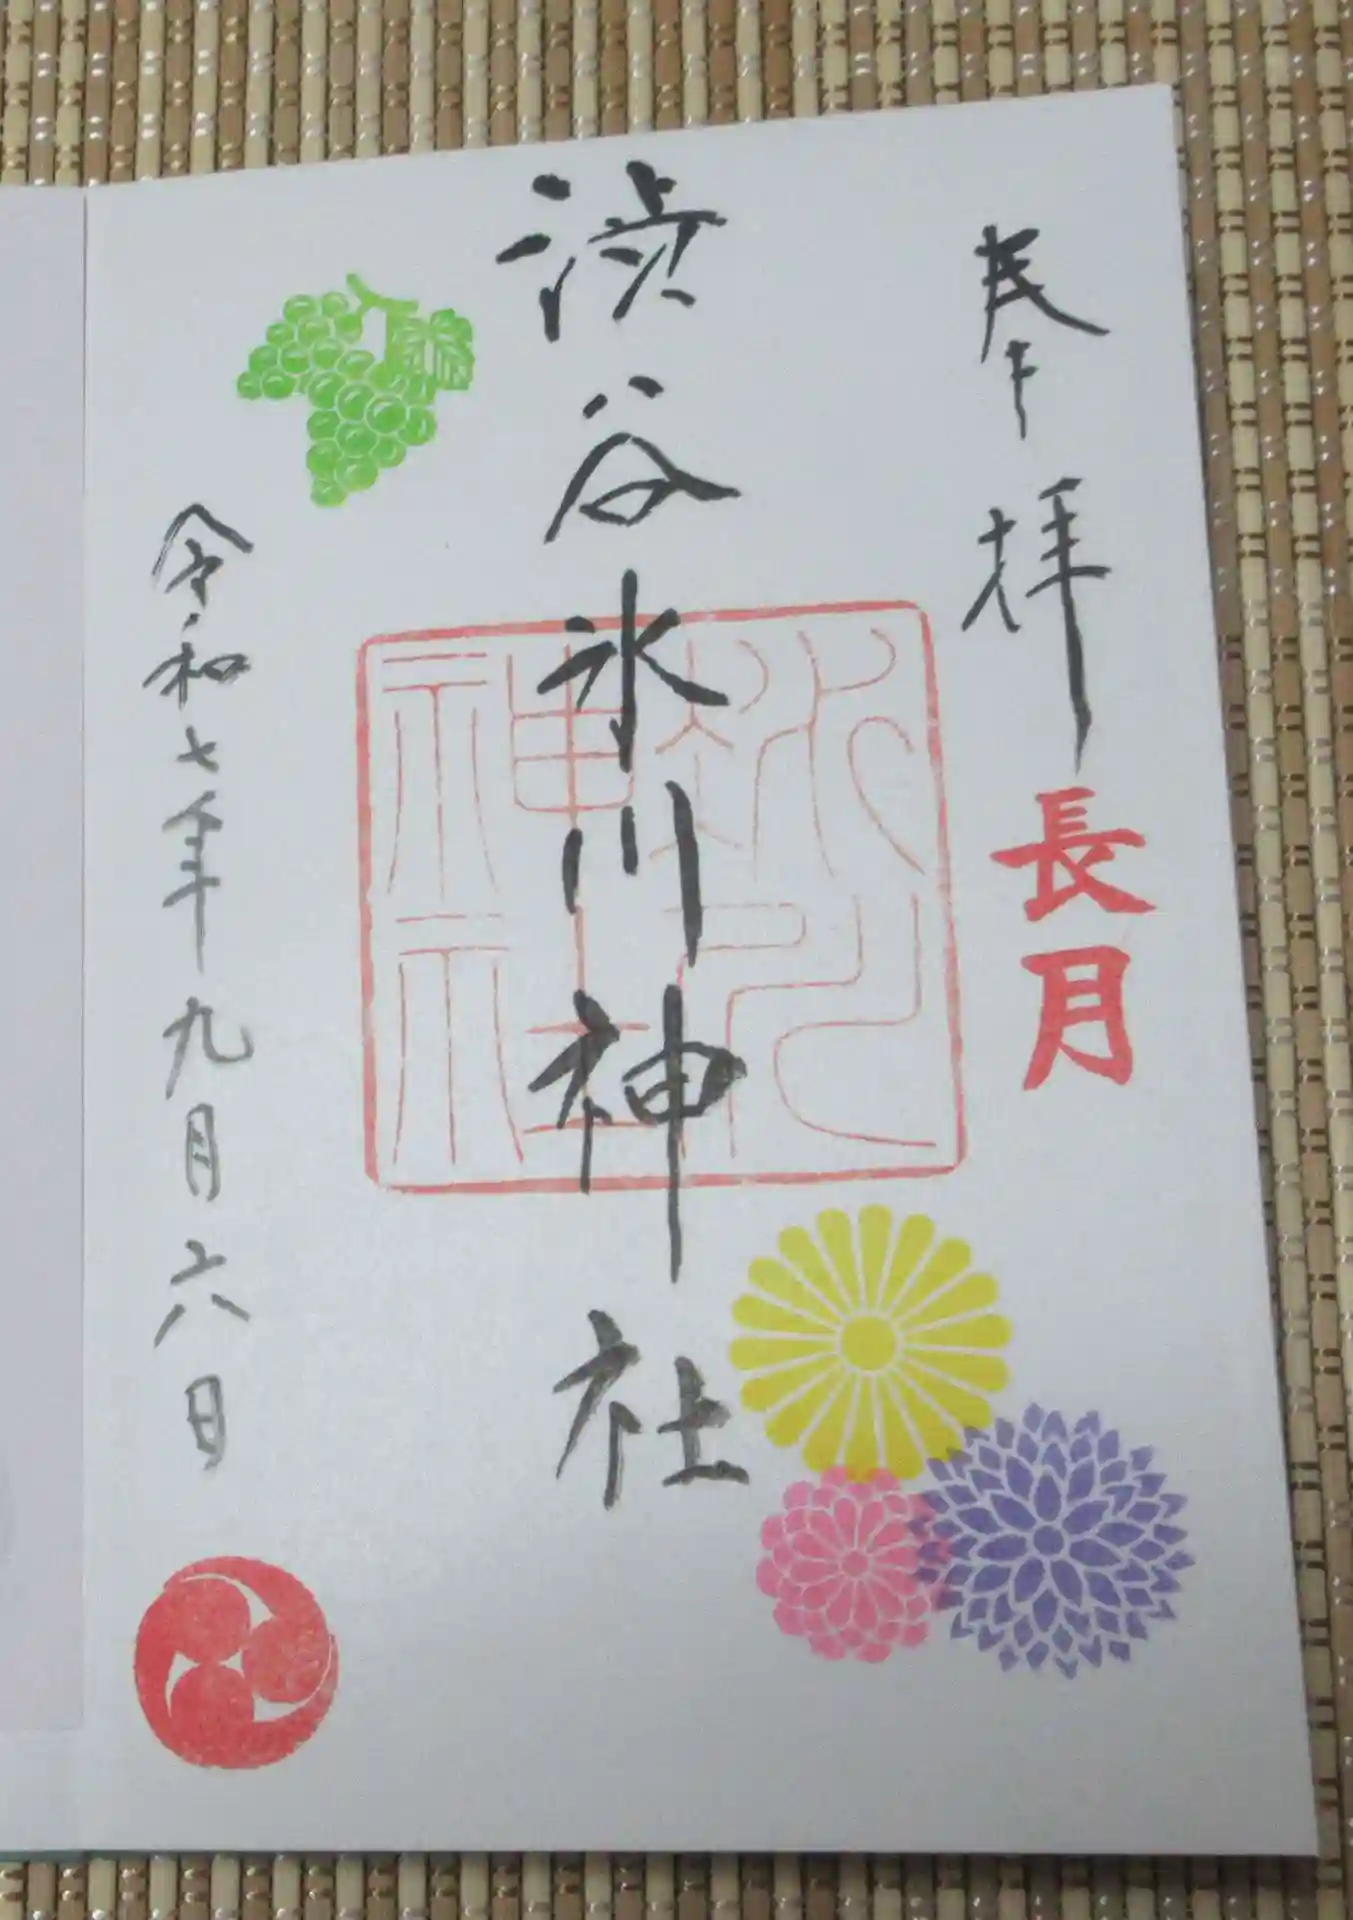 奉拝
長月
渋谷氷川神社
氷川
神社
令和七年九月六日